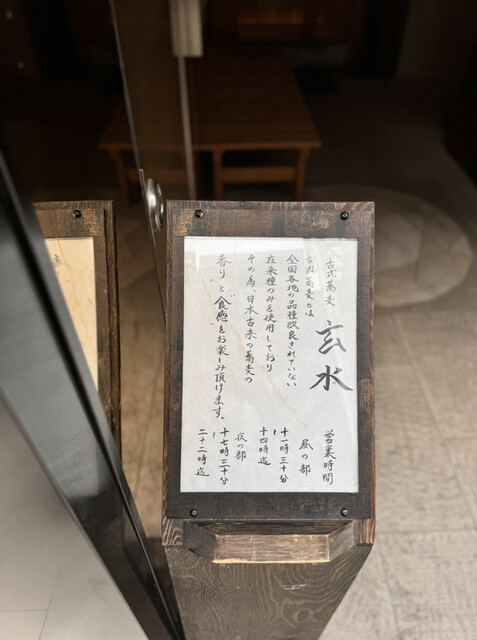 古式蕎麦
玄水
古式蕎麦とは
全国各地の品種改良されていない
在来種のみを使用しており
その為、日本古来の蕎麦の
香りと“食感”をお楽しみ頂けます。
営業時間
昼の部
十一時三十分
〜
十四時迄
夜の部
十七時三十分
〜
二十二時迄